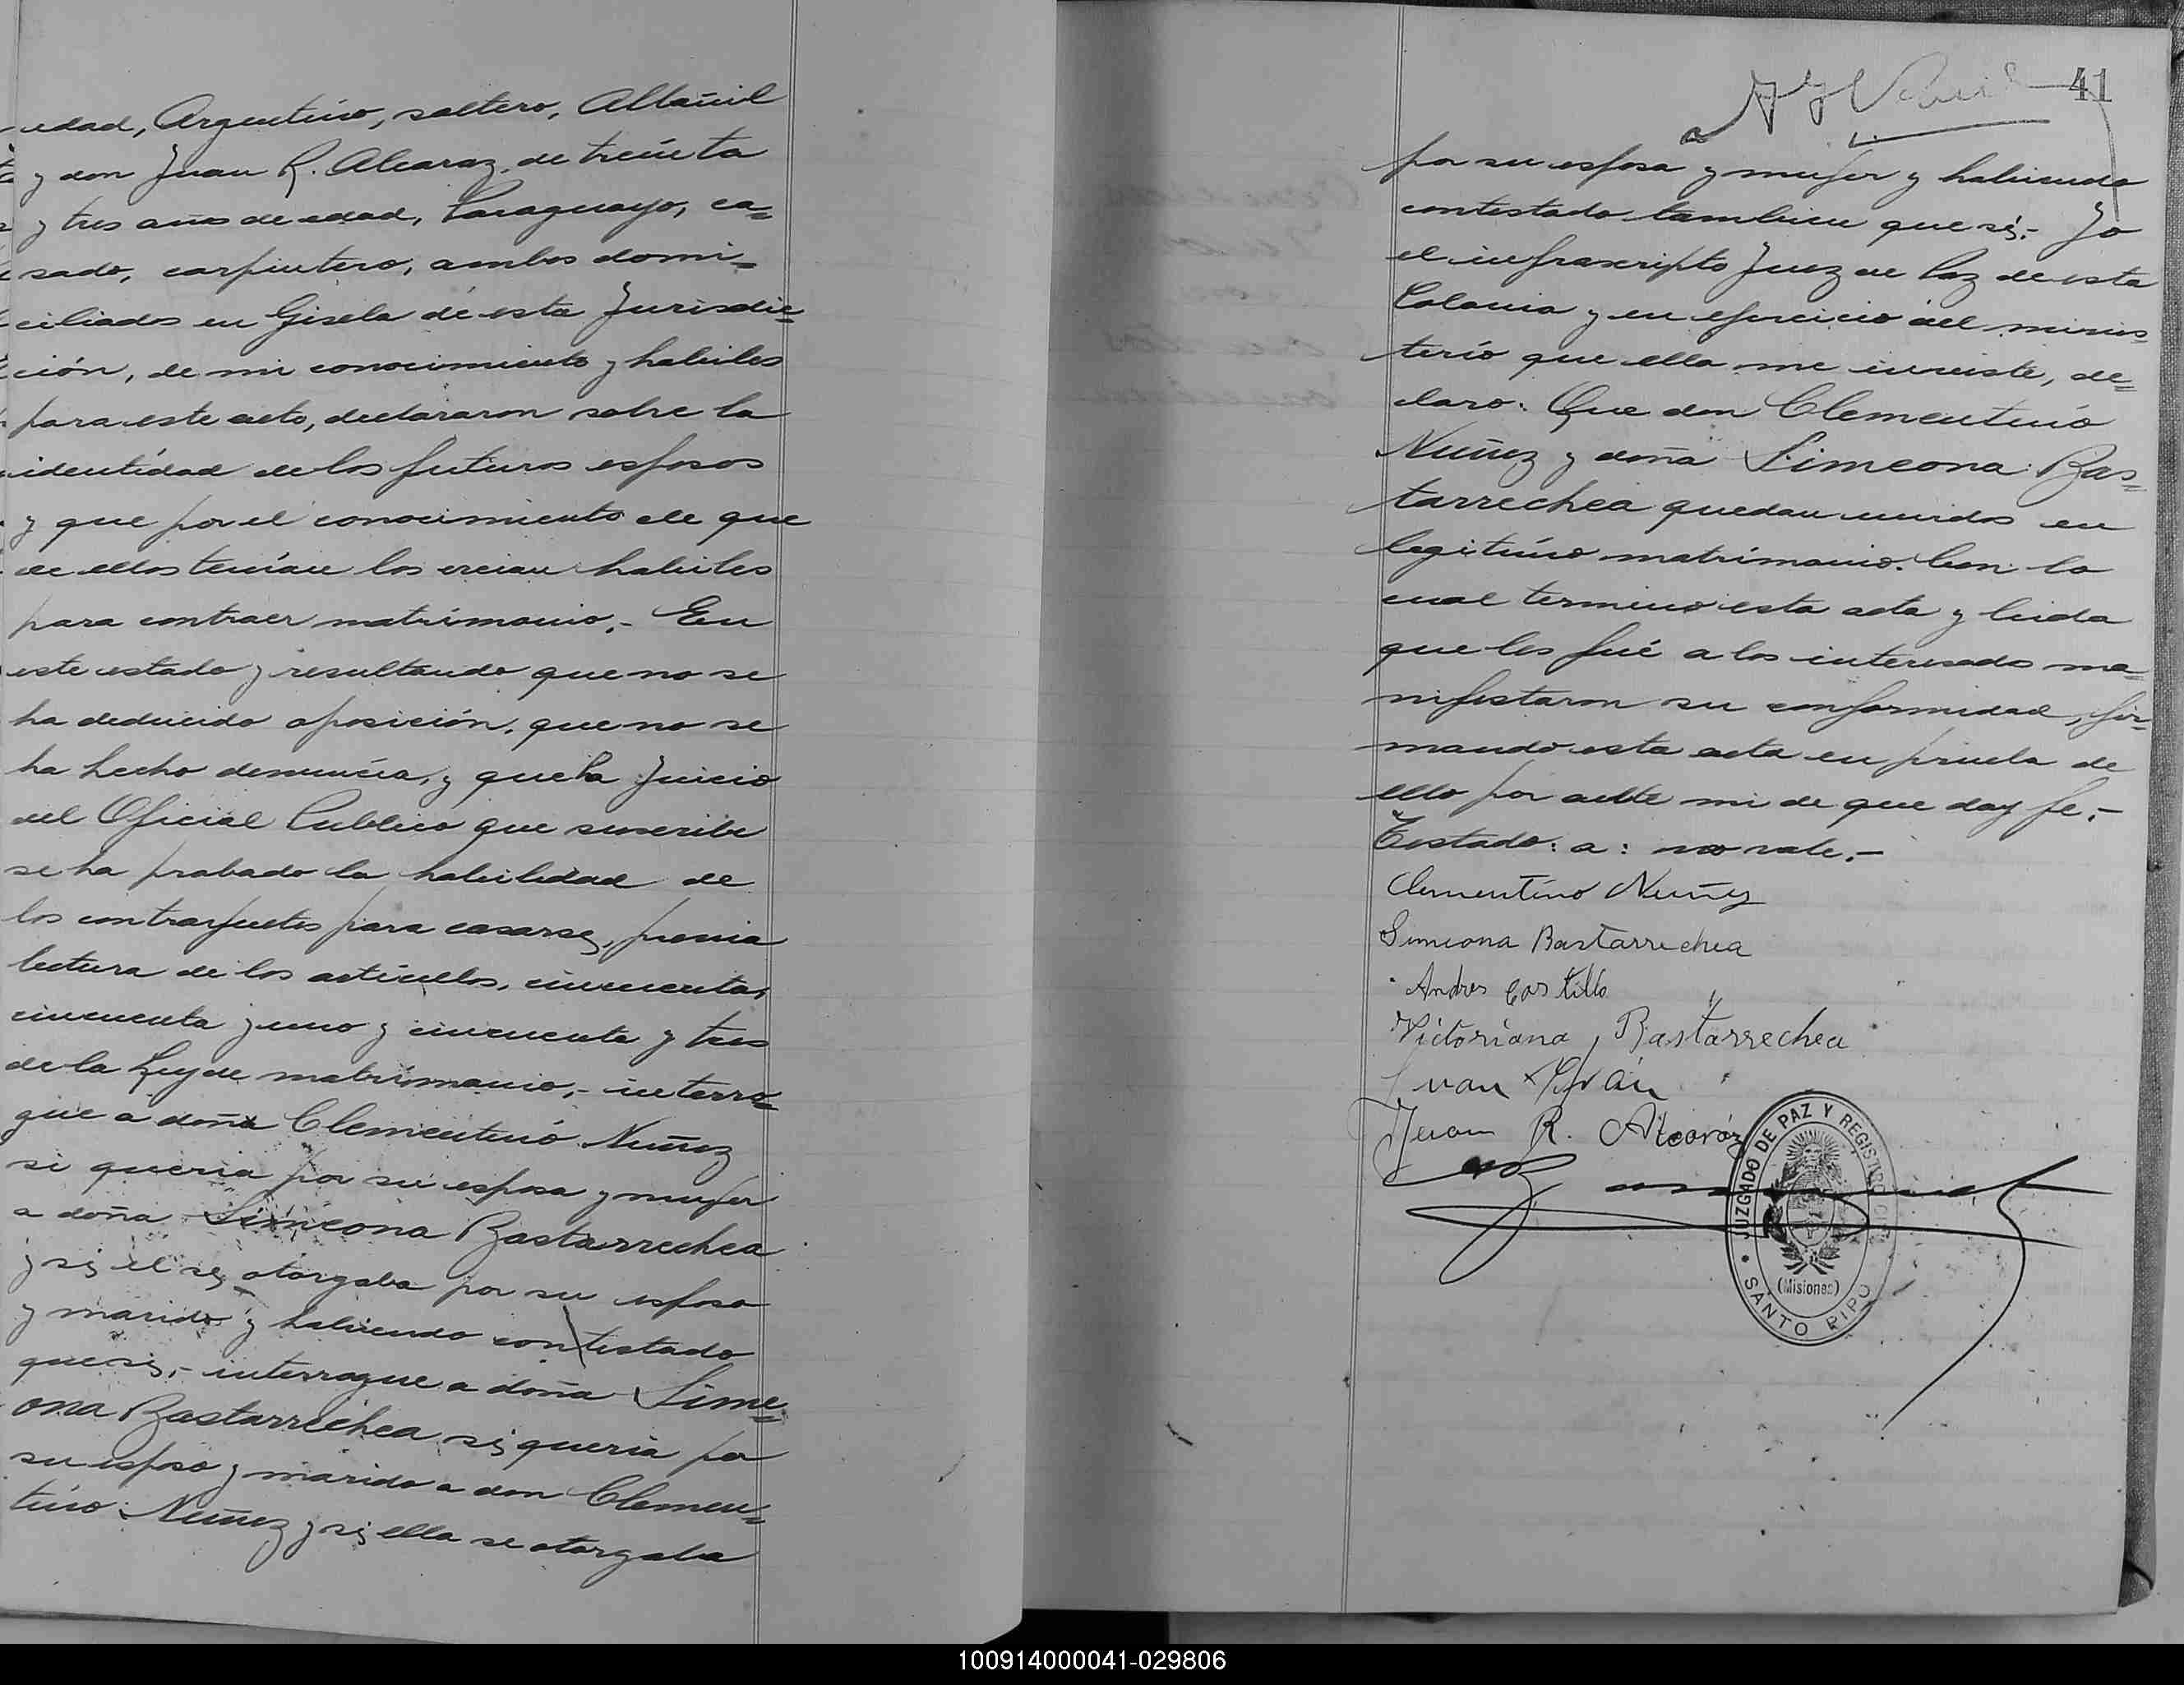 edad, Argentino, soltero, Albañil
y don Juan R. Alcaraz, de treinta
y tres años de edad, Paraguayo, ca=
sado, carpintero, ambos domi=
ciliados en Gisela de esta Jurisdic=
ción, de mi conocimiento y habiles
para este acto, declararon sobre la
identidad de los futuros esposos
y que por el conocimiento de que
de ellos tenian los creian habiles
para contraer matrimonio.- En
este estado y resultando que no se
ha deducido oposición, que no se
ha hecho denuncia, y que a Juicio
del Oficial Publico que suscribe
se ha probado la habilidad de
los contrayentes para casarse, previa
lectura de los articulos, cincuenta,
cincuenta y uno y cincuenta y tres
de la Ley de matrimonio,- interro=
gue a doña Clementino Nuñez
si queria por su esposa y mujer
a doña Simeona Bastarrechea
y si el se otorgaba por su esposo
y marido y habiendo contestado
que si,- interrogue a doña Sime=
ona Bastarrechea si queria por
su esposo y marido a don Clemen=
tino Nuñez y si ella se otorgaba
41
por su esposa y mujer y habiendo
contestado tambien que si,- Yo
el infrascripto Juez de Paz de esta
Colonia y en ejercicio del minis=
terio que ella me inviste, de=
claro: Que don Clementino
Nuñez y doña Simeona Bas=
tarrechea quedan unidos en
legitimo matrimonio. Con lo
cual termino esta acta y leida
que les fué a los interesados ma=
nifestaron su conformidad, fir=
mando esta acta en prueba de
ello por ante mi de que doy fe,-
Testado: a: no vale.-
Clementino Nuñez
Simeona Bastarrechea
Andres Castillo
Victoriana Bastarrechea
Juan
Juan R. Alcaráz
JUZGADO DE PAZ Y REGISTRO CIVIL
(Misiones)
SANTO PIPO
100914000041-029806